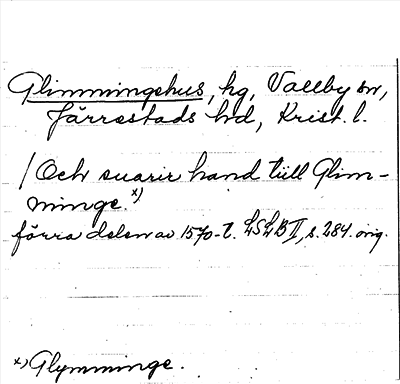 Glimmingehus, hg, Vallby sn,
Järrestads hd, Krist. l.
/ Och suarir hand till Glim-
minge.x)
förra delen av 1570-t. LSLB II, s. 284. orig.
x) Glymminge.